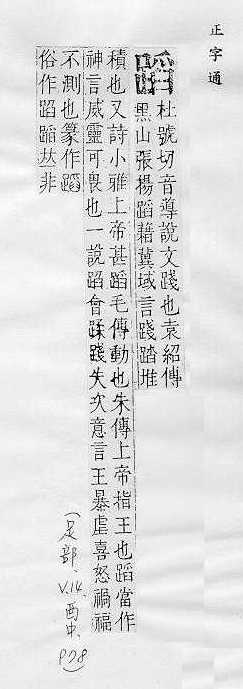 正字通
蹈 杜號切音導說文踐也袁紹傳
黑山張楊蹈藉冀域言踐踏堆
積也又詩小雅上帝甚蹈毛傳動也朱傳上帝指王也蹈當作
神言威靈可畏也一說蹈會蹂踐失次意言王暴虐喜怒禍福
不測也篆作蹈
俗作蹈蹈𠀤非
(足部、
V.14、酉中、
P78)